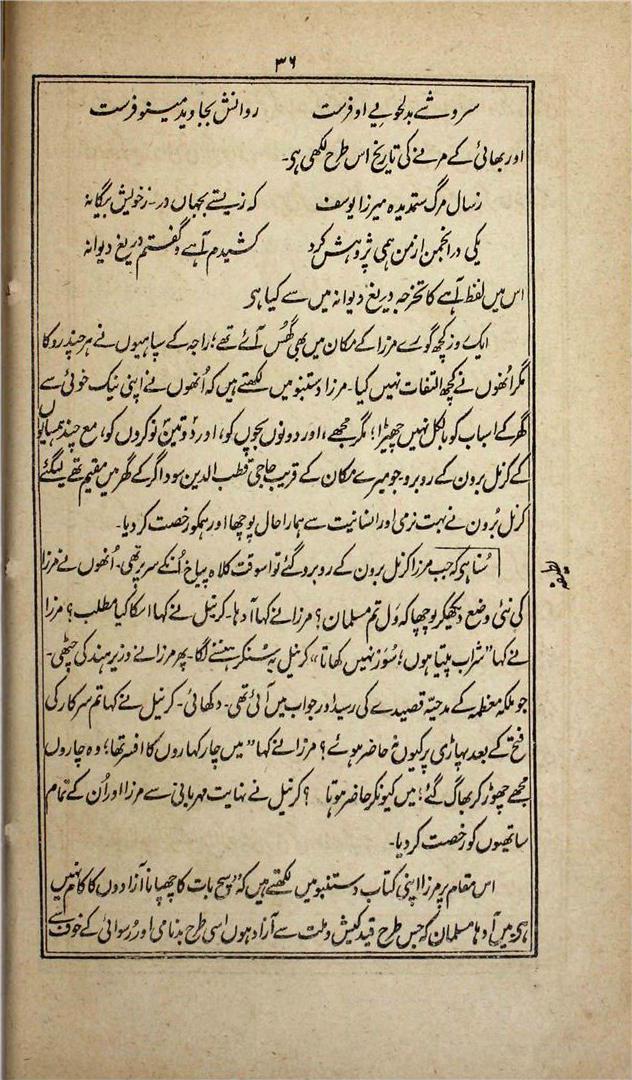 ۳۶
سروشے بدلجویے او فرست روانش بجاوید مینو فرست
اور بھائی کے مرنے کی تاریخ اس طرح لکھی ہی۔
زسال مرگ ستمدیده میرزا یوسف که زیستے بجہاں در زخویش بیگانۂ
یکی در انجمن از من ہمی پژوہش کرد کشیدم آہے و گفتم دریغ دیوانہ
اس میں لفظ آہے کا تخرجہ دریغ دیوانہ میں سے کیا ہی
ایک روز کچھ گورے مرزا کے مکان میں بھی گھُس آئے تھے؛ راجہ کے سپاہیوں نے ہر چند روکا
مگر اُنھوں نے کچھ التفات نہیں کیا۔ مرزا دستنبو میں لکھتے ہیں کہ اُنھوں نے اپنی نیک خوئی سے
گھر کے اسباب کو بالکل نہیں چھیڑا؛ مگر مجھے، اور دونوں بچوں کو، اور دو تین نوکروں کو، مع چند ہمسایوں
کے کرنل برون کے روبرو جو میرے مکان کے قریب حاجی قطب الدین سوداگر کے گھر میں مقیم تھے لیگئے
کرنل بُرون نے بہت نرمی اور انسانیت سے ہمارا حال پوچھا اور ہمکو رخصت کر دیا۔
سُنا ہی کہ جب مرزا کرنل برون کے روبرو گئے تو اسوقت کلاہ پپاخ اُنکے سر پر تھی۔ اُنھوں نے مرزا
لطیفہ
کی نئی وضع دیکھکر پوچھا کہ وَل تم مسلمان؟ مرزا نے کہا آدہا۔ کرنیل نے کہا اسکا کیا مطلب؟ مرزا
نے کہا "شراب پیتا ہوں؛ سُوَر نہیں کھاتا" کرنیل یہ سُنکر ہنسنے لگا۔ پھر مرزا نے وزیر ہند کی چٹھی۔
جو ملکہ معظمہ کے مدحیّہ قصیدے کی رسید اور جواب میں آئی تھی۔ دکھائی۔ کرنیل نے کہا تم سرکار کی
فتح کے بعد پہاڑی پر کیوں نہ حاضر ہوئے؟ مرزا نے کہا "میں چار کہاروں کا افسر تھا؛ وہ چاروں
مجھے چھوڑ کر بھاگ گئے؛ میں کیونکر حاضر ہوتا ؟ کرنیل نے نہایت مہربانی سے مرزا اور اُن کے تمام
ساتھیوں کو رخصت کر دیا۔
اس مقام پر مرزا اپنی کتاب دستنبو میں لکھتے ہیں کہ "سچ بات کا چھپانا آزادوں کا کام نہیں
ہی میں آدہا مسلمان کہ جس طرح قید کیش و ملت سے آزاد ہوں اسی طرح بدنامی اور رُسوائی کے خوف سے